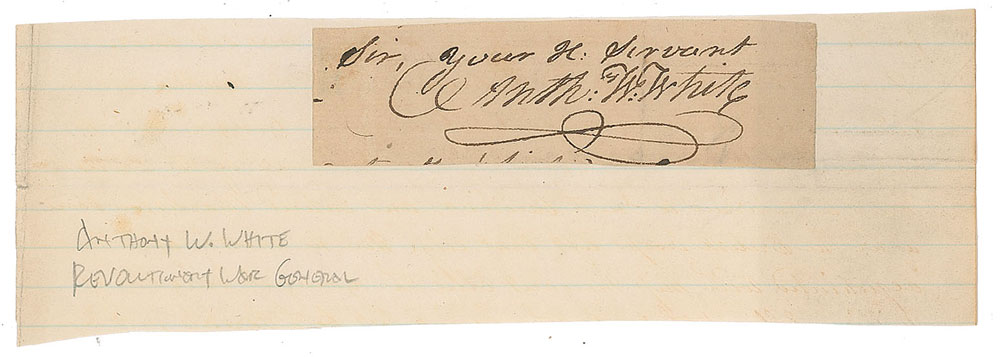 Sir, Your H: Servant
Anth: W: White
Anthony W. White
Revolutionary War General